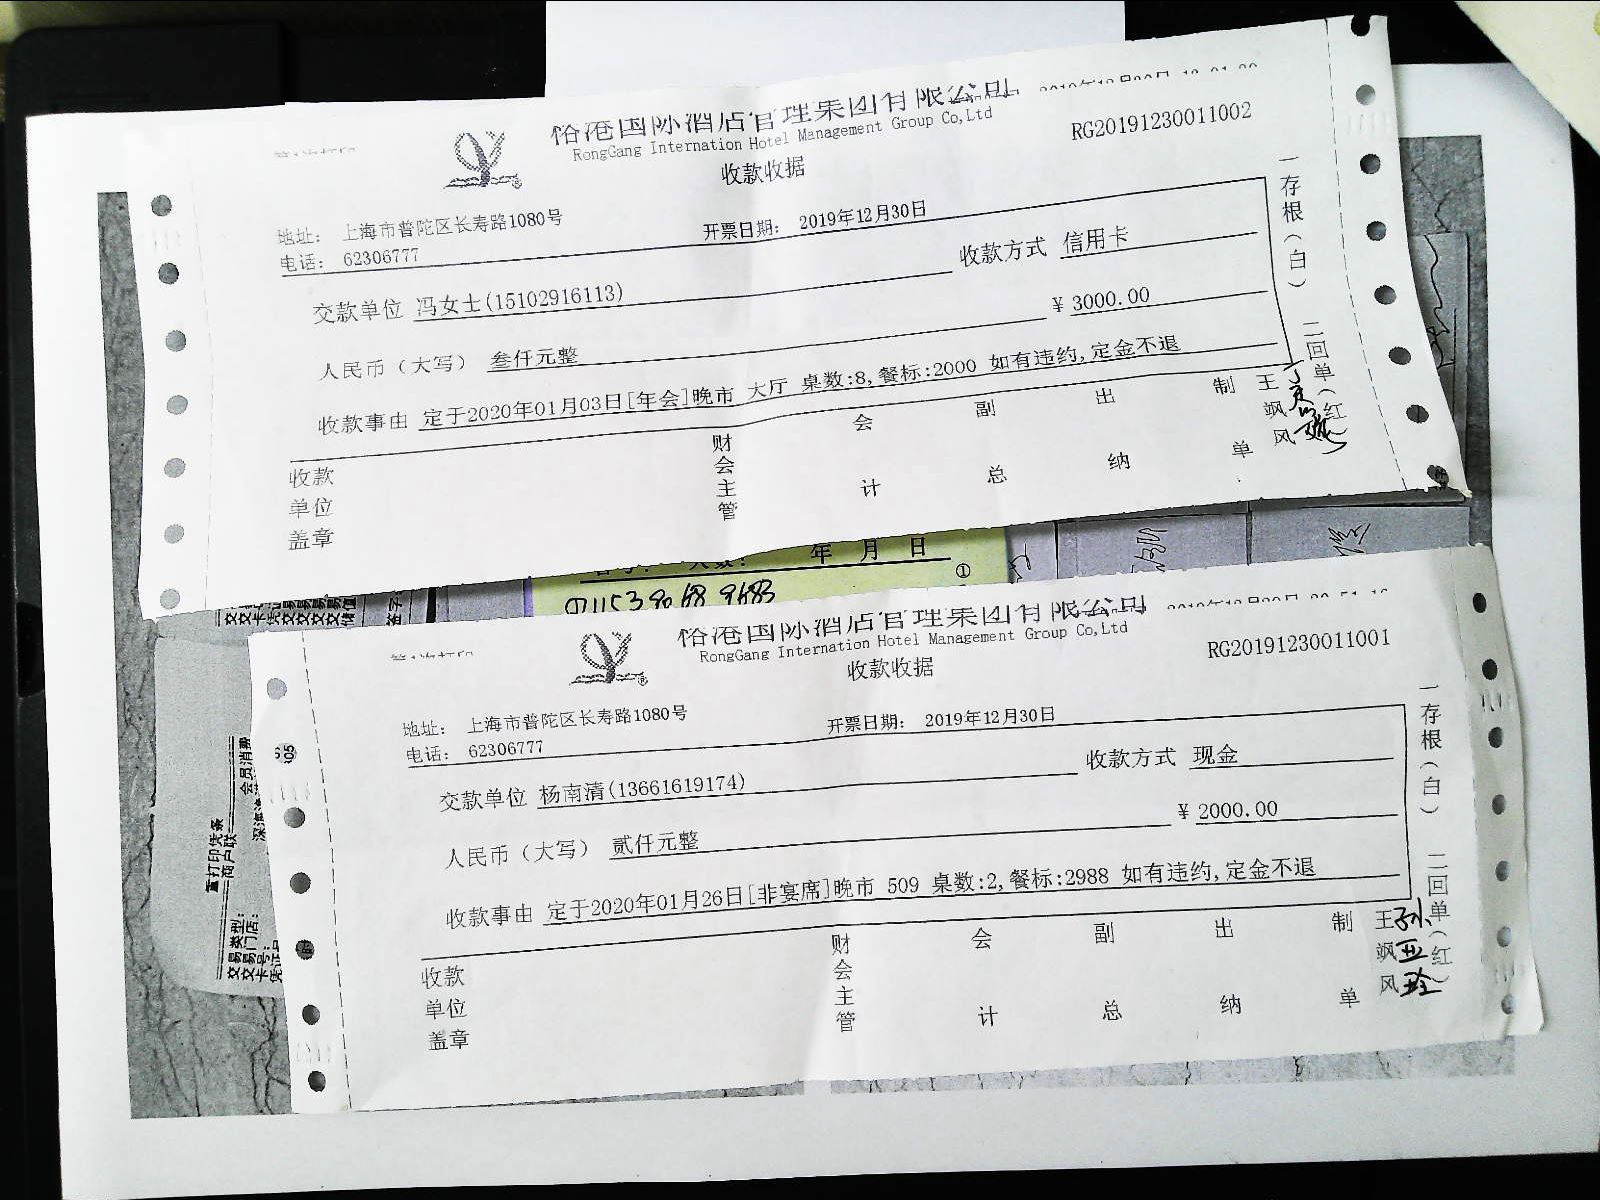 国际酒店管理集团有限公司
RongGang Internation Hotel Management Group Co,Ltd
RG20191230011002
收款收据
地址： 上海市普陀区长寿路1080号
开票日期： 2019年12月30日
电话： 62306777
收款方式 信用卡
交款单位 冯女士(15102916113)
¥ 3000.00
人民币（大写） 叁仟元整
收款事由 定于2020年01月03日[年会]晚市 大厅 桌数:8,餐标:2000 如有违约,定金不退
收款单位盖章
财会主管
会计
副总
出纳
制单
王飒风
一存根（白） 二回单（红）
年 月 日
①
国际酒店管理集团有限公司
RongGang Internation Hotel Management Group Co,Ltd
RG20191230011001
收款收据
地址： 上海市普陀区长寿路1080号
开票日期： 2019年12月30日
电话： 62306777
收款方式 现金
交款单位 杨南清(13661619174)
¥ 2000.00
人民币（大写） 贰仟元整
收款事由 定于2020年01月26日[非宴席]晚市 509 桌数:2,餐标:2988 如有违约,定金不退
收款单位盖章
财会主管
会计
副总
出纳
制单
王飒风
一存根（白） 二回单（红）
重打印凭条
商户联
会员消费
交易类型:
交易门店:
卡号: